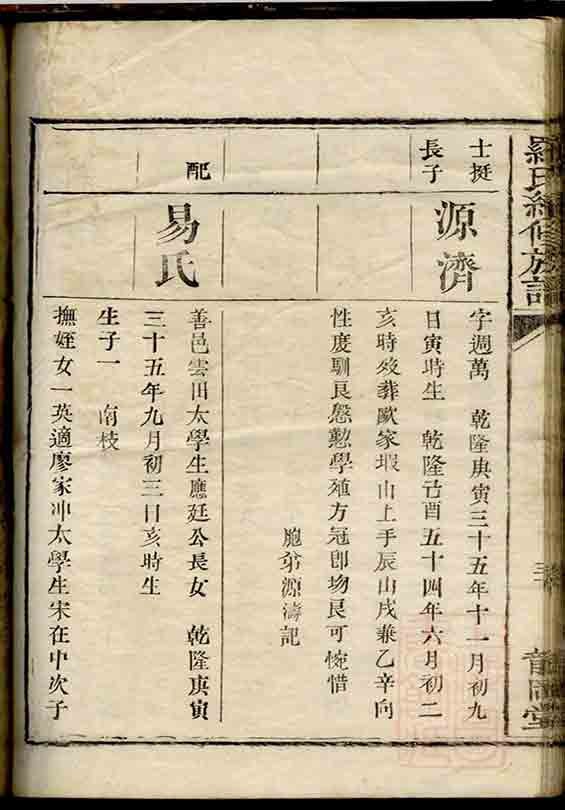 羅氏續修族譜
士挺
長子
源濟
字週萬 乾隆庚寅三十五年十一月初九
日寅時生 乾隆己酉五十四年六月初二
亥時歿葬歐家塅山上手辰山戌兼乙辛向
性度馴良慇懃學殖方冠卽殀良可惋惜
胞弟源濤記
配
易氏
善邑雲田太學生應廷公長女 乾隆庚寅
三十五年九月初三日亥時生
生子一 南枝
撫姪女一英適廖家冲太學生宋在中次子